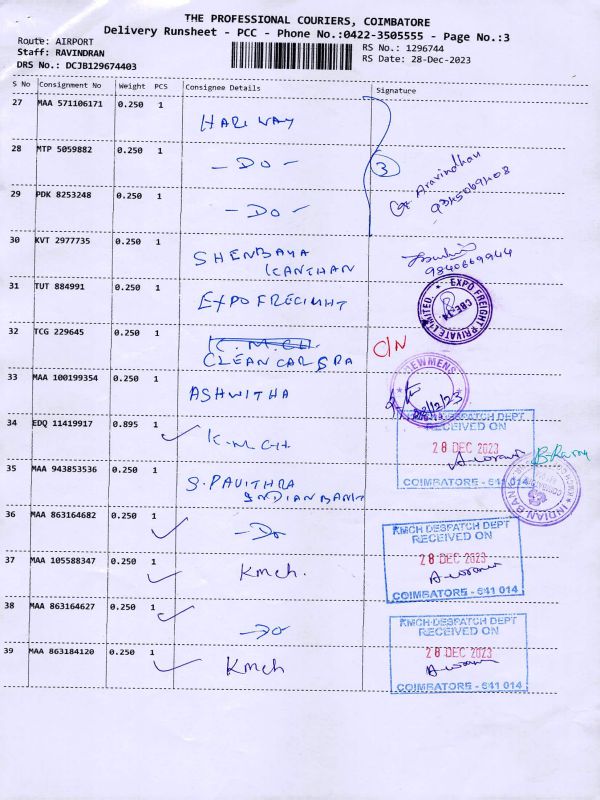 THE PROFESSIONAL COURIERS, COIMBATORE
Delivery Runsheet - PCC - Phone No.:0422-3505555 - Page No.:3
Route: AIRPORT
Staff: RAVINDRAN
DRS No.: DCJB129674403
RS No.: 1296744
RS Date: 28-Dec-2023
S No Consignment No Weight PCS Consignee Details Signature
27 MAA 571106171 0.250 1
HARI WAY
28 MTP 5059882 0.250 1
- Do -
3
Aravindhan
29 PDK 8253248 0.250 1
- Do -
30 KVT 2977735 0.250 1
SHENBAGA
KANTHAN
9840669944
31 TUT 884991 0.250 1
EXPO FREIGHT
EXPO FREIGHT PRIVATE LIMITED
CBE
32 TCG 229645 0.250 1
K.M.CH
CLEAN CAR SPA
C/N
33 MAA 100199354 0.250 1
ASHWITHA
NEWMENS
28/12/23
34 EDQ 11419917 0.895 1
K.M.CH
KMCH DESPATCH DEPT
RECEIVED ON
28 DEC 2023
COIMBATORE - 641 014
35 MAA 943853536 0.250 1
S. PAVITHRA
INDIAN BANK
INDIAN BANK
36 MAA 863164682 0.250 1
- Do
KMCH DESPATCH DEPT
RECEIVED ON
28 DEC 2023
COIMBATORE - 641 014
37 MAA 105588347 0.250 1
Kmch.
38 MAA 863164627 0.250 1
- Do
KMCH DESPATCH DEPT
RECEIVED ON
28 DEC 2023
COIMBATORE - 641 014
39 MAA 863184120 0.250 1
Kmch